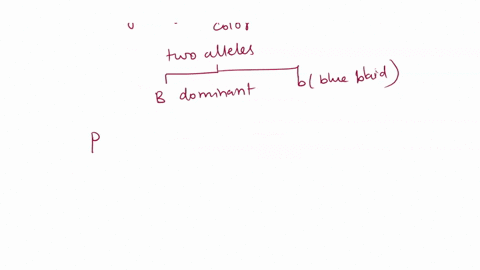 color
two alleles
B dominant b (blue blaid)
P